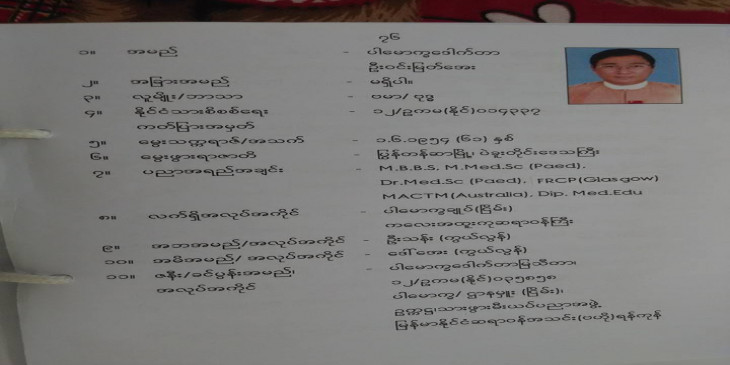 ၇၆
၁။ အမည် - ပါမောက္ခဒေါက်တာ
ဦးဝင်းမြတ်အေး
၂။ အခြားအမည် - မရှိပါ။
၃။ လူမျိုး/ဘာသာ - ဗမာ/ ဗုဒ္ဓ
၄။ နိုင်ငံသားစိစစ်ရေး - ၁၂/ဥကမ(နိုင်)၀၁၄၃၃၇
ကတ်ပြားအမှတ်
၅။ မွေးသက္ကရာဇ်/အသက် - ၁.၆.၁၉၅၄ (၆၁) နှစ်
၆။ မွေးဖွားရာဇာတိ - မြွန်တန်ဆာမြို့၊ ပဲခူးတိုင်းဒေသကြီး
၇။ ပညာအရည်အချင်း - M.B.B.S, M.Med.Sc (Paed),
Dr.Med.Sc (Paed), FRCP(Glasgow)
MACTM(Australia), Dip. Med.Edu
၈။ လက်ရှိအလုပ်အကိုင် - ပါမောက္ခချုပ်(ငြိမ်း)
ကလေးအထူးကုဆရာဝန်ကြီး
၉။ အဘအမည်/အလုပ်အကိုင် - ဦးသန်း (ကွယ်လွန်)
၁၀။ အမိအမည်/ အလုပ်အကိုင် - ဒေါ်အေး (ကွယ်လွန်)
၁၁။ ဇနီး/ခင်ပွန်းအမည်၊ - ပါမောက္ခဒေါက်တာမြသီတာ၊
အလုပ်အကိုင် ၁၂/ဥကမ(နိုင်)၀၃၅၈၅၈
ပါမောက္ခ/ ဌာနမှူး (ငြိမ်း)၊
ဥက္ကဋ္ဌ၊သားဖွားမီးယပ်ပညာအဖွဲ့
မြန်မာနိုင်ငံဆရာဝန်အသင်း(ဗဟို)ရန်ကုန်